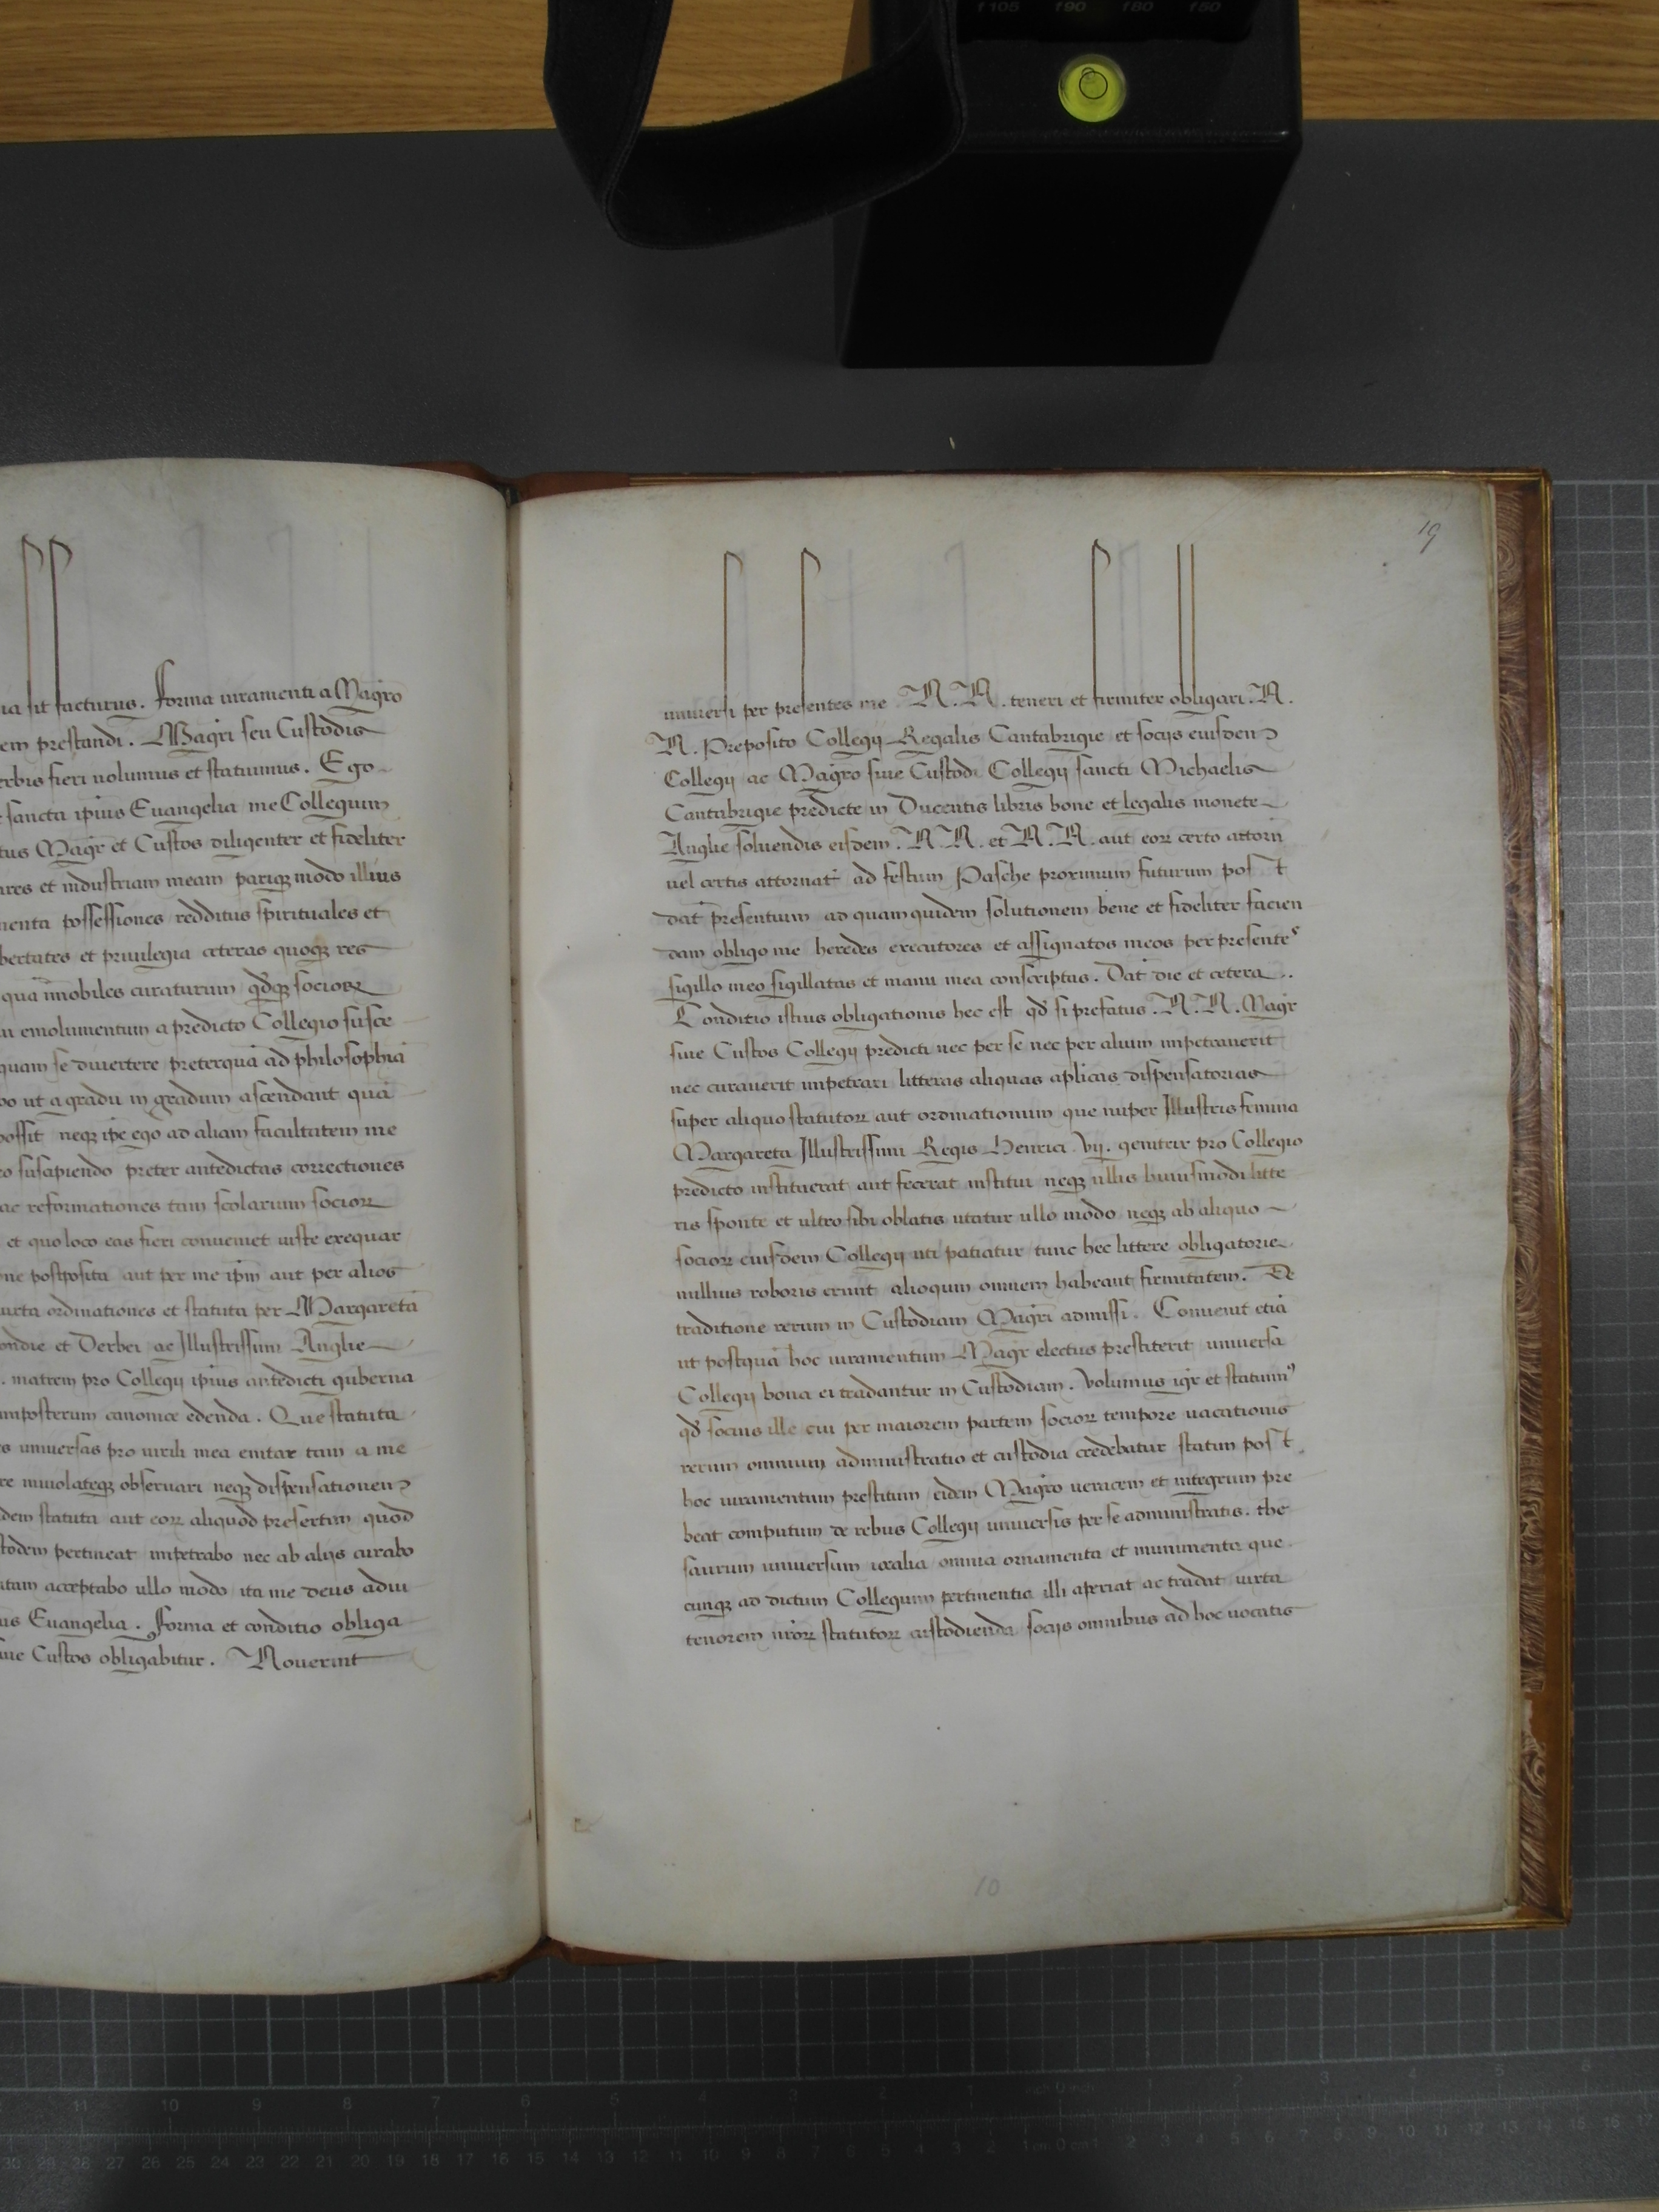 f105 f90 f80 f50
19
ia sit facturus . forma iuramenti a Magr̄o
em prestandi . Magri seu Custodis
erbis fieri uolumus et statuimus . Ego
sancta ip̄ius Euangelia me Collegium
tus Magr̄ et Custos diligenter et fideliter
ires et industriam meam pariqꝫ modo illius
menta possessiones redditus spirituales et
bertates et priuilegia ceteras quoqꝫ res
qua īmobiles curaturum qđqꝫ socioꝝ
emolumentum a predicto Collegio susce
quam se diuertere preterquā ad philosophiā
bo ut a gradu in gradum ascendant quā
possit neqꝫ ip̄e ego ad aliam facultatem me
o suscipiendo preter antedictas correctiones
ac reformationes tam scolarium socioꝝ
et quo loco eas fieri conueniet iuste exequar
ne postposita aut per me ip̄m aut per alios
iuxta ordinationes et statuta per Margaretā
ondie et Derbei ac Illustrissimi Anglie
. matrem pro Collegij ip̄ius antedicti guberna
imposterum canonice edenda . Que statuta
s uniuersas pro uirili mea enitar tam a me
re inuiolateqꝫ obseruari neqꝫ dispensationem
dem statuta aut eoꝝ aliquod presertim quod
todem pertineat impetrabo nec ab alijs curabo
tam acceptabo ullo modo ita me deus adiu
us Euangelia . forma et conditio obliga
iue Custos obligabitur . Nouerint
uniuersi per presentes me N. N. teneri et firmiter obligari . N.
N. Preposito Collegij Regalis Cantabrigie et socijs eiusdem
Collegij ac Magr̄o siue Custodi Collegij sancti Michaelis
Cantabrigie predicte in Ducentis libris bone et legalis monete
Anglie soluendis eisdem . N. N. et N. N. aut eoꝝ certo attorn̄
uel certis attornat̄ ad festum Pasche proximum futurum post
dat̄ presentium ad quam quidem solutionem bene et fideliter facien
dam obligo me heredes executores et assignatos meos per presentes
sigillo meo sigillatas et manu mea conscriptas . Dat̄ die et cetera ..
Conditio istius obligationis hec est qđ si prefatus . N. N. Magr̄
siue Custos Collegij predicti nec per se nec per alium impetrauerit
nec curauerit impetrari litteras aliquas ap̄licas dispensatorias
super aliquo statutoꝝ aut ordinationum que nuper Illustris femina
Margareta Illustrissimi Regis Henrici . Vij. genitrix pro Collegio
predicto instituerat aut fecerat institui neqꝫ ullis huiusmodi litte
ris sponte et ultro sibi oblatis utatur ullo modo neqꝫ ab aliquo
socioꝝ eiusdem Collegij uti patiatur tunc hec littere obligatorie
nullius roboris erunt alioquin omnem habeant firmitatem . De
traditione rerum in Custodiam Magri admissi . Conuenit etiā
ut postquā hoc iuramentum Magr̄ electus prestiterit uniuersa
Collegij bona ei tradantur in Custodiam . Volumus igr̄ et statuimꝰ
qđ socius ille cui per maiorem partem socioꝝ tempore uacationis
rerum omnium administratio et custodia credebatur statim post
hoc iuramentum prestitum eidem Magr̄o ueracem et integrum pre
beat computum de rebus Collegij uniuersis per se administratis . the
saurum uniuersum iocalia omnia ornamenta et munimenta que
cunqꝫ ad dictum Collegium pertinentia illi aperiat ac tradat iuxta
tenorem nr̄oꝝ statutoꝝ custodienda socijs omnibus ad hoc uocatis
10
11 10 9 8 7 6 5 4 3 2 1 inch 0 inch 1 2 3 4 5 6
30 29 28 27 26 25 24 23 22 21 20 19 18 17 16 15 14 13 12 11 10 9 8 7 6 5 4 3 2 1 cm 0 cm 1 2 3 4 5 6 7 8 9 10 11 12 13 14 15 16 17